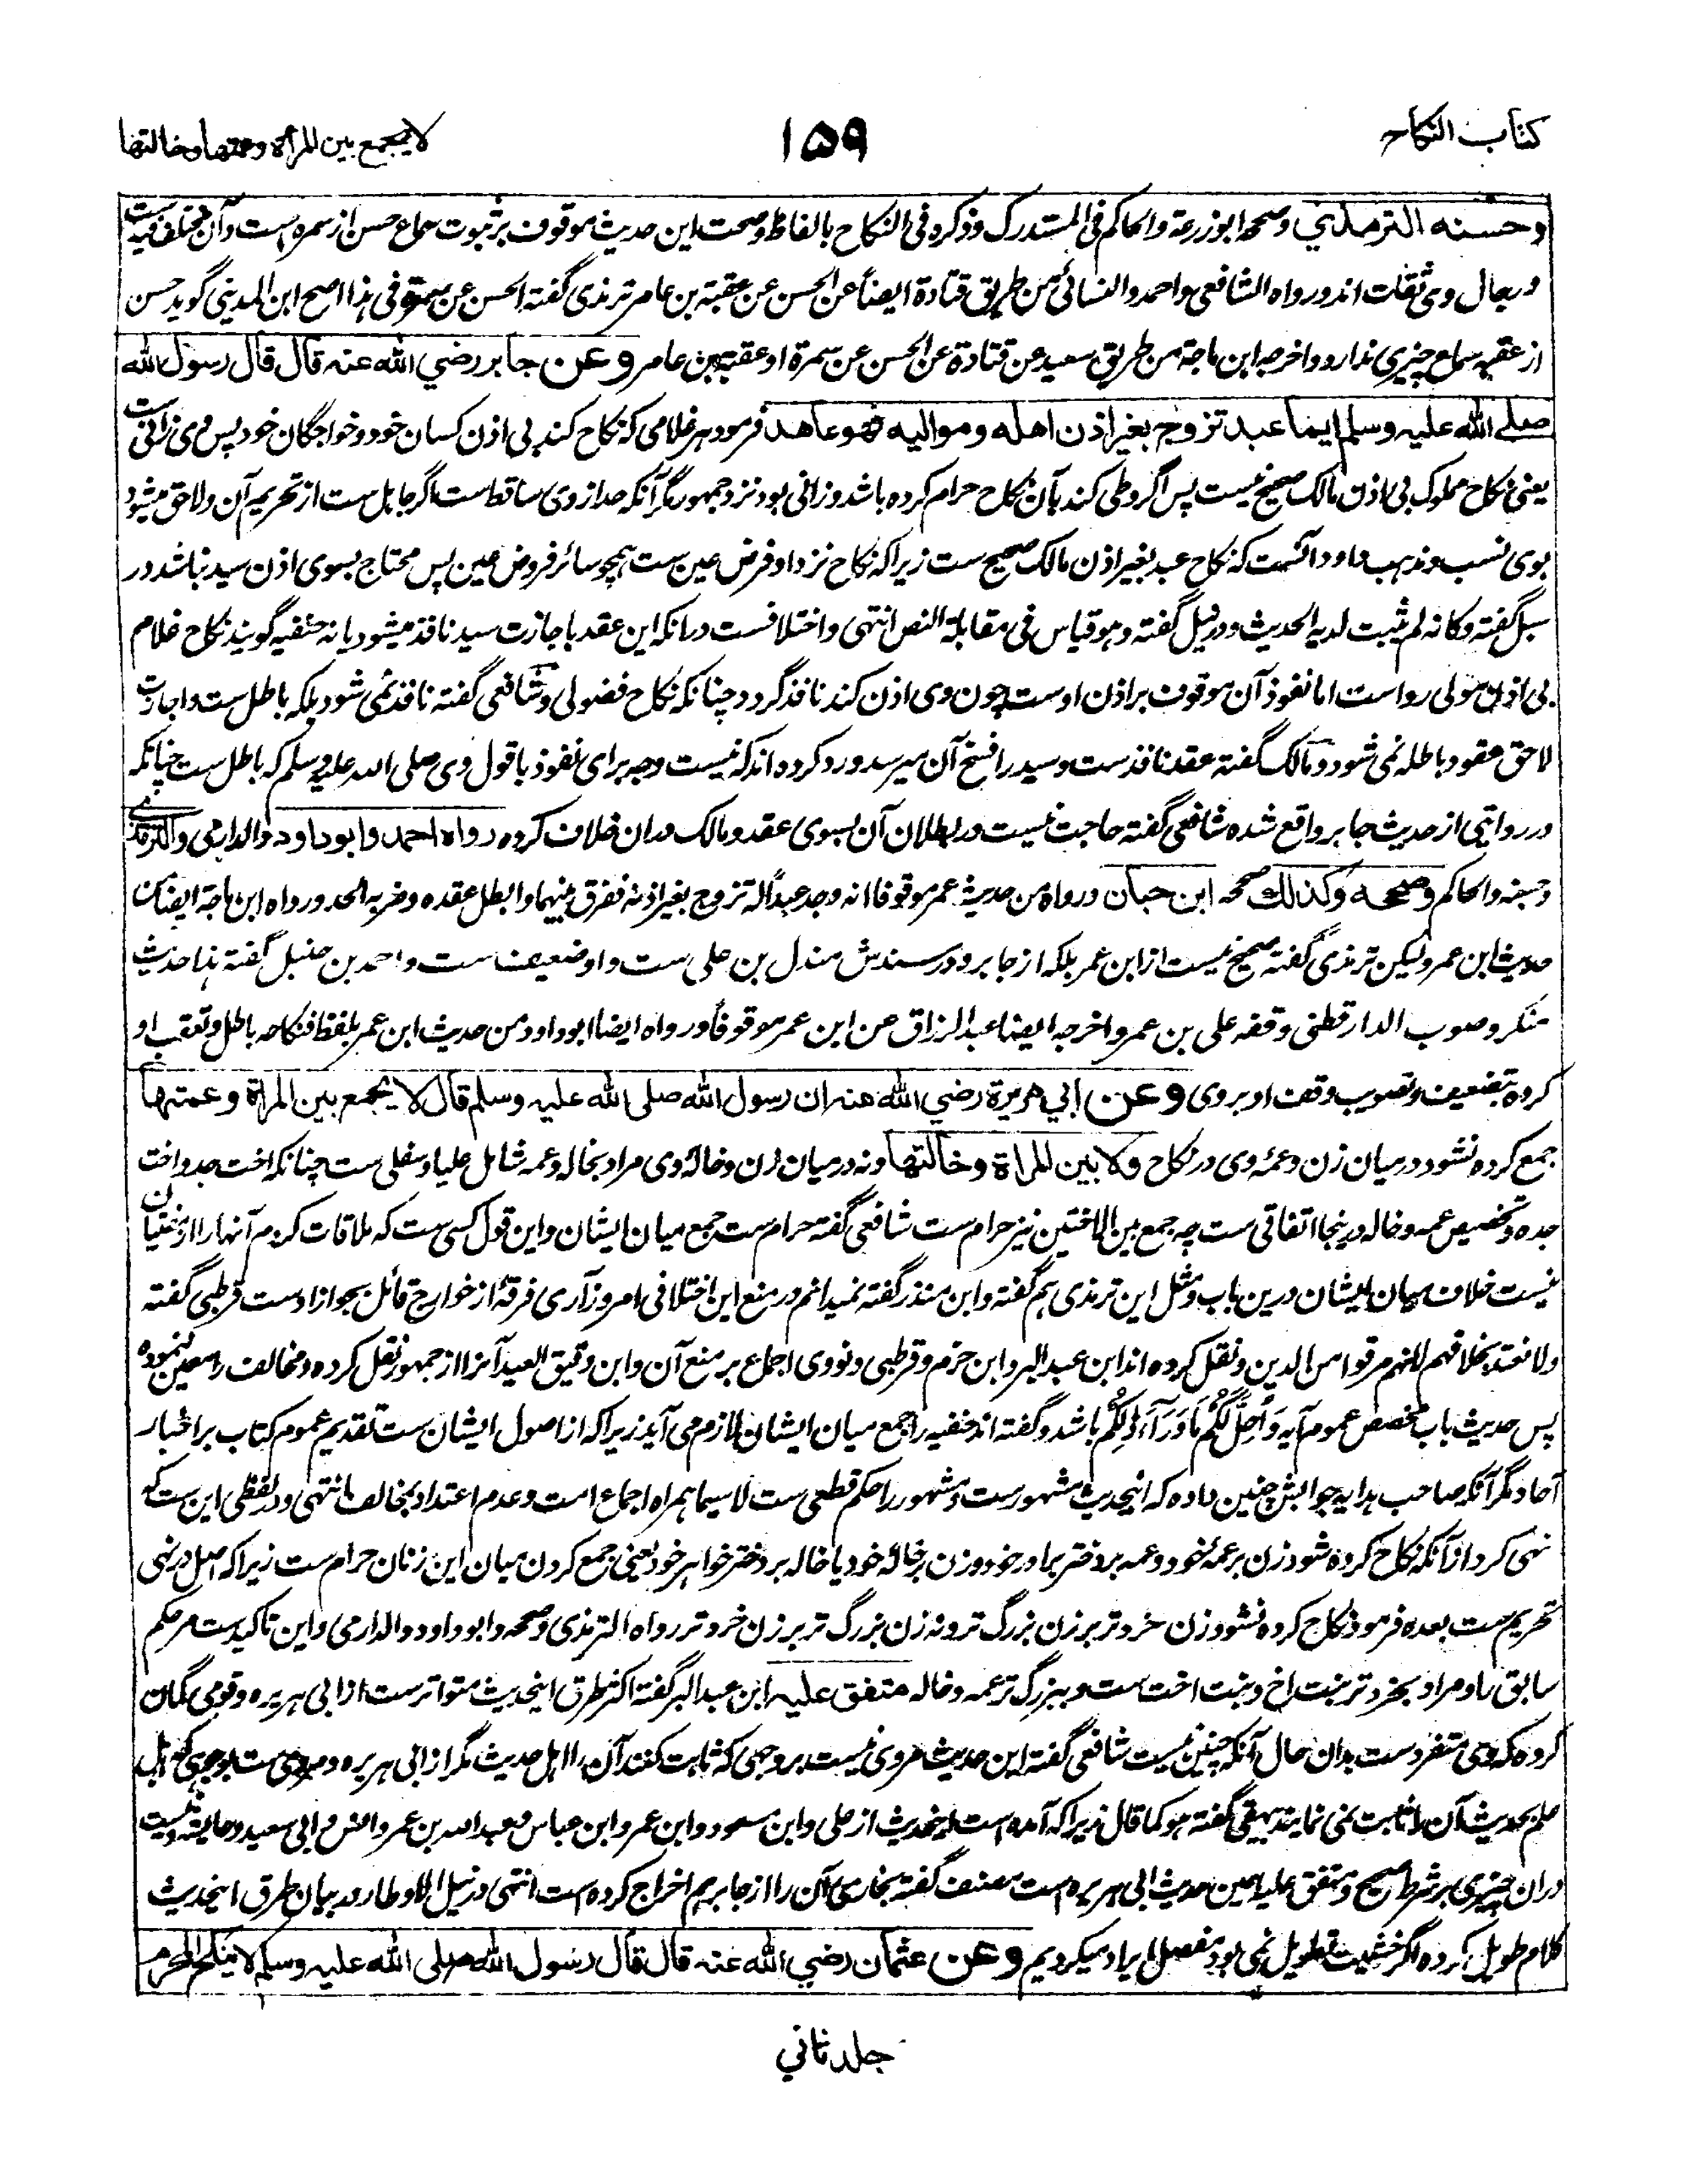 كتاب النكاح
١٥٩
لا يجمع بين المرأة وعمتها وخالتها
وحسنه الترمذي وصححه ابوزرعة والحاكم فى المستدرك وذكره فى النكاح بالفاظ وصحت اين حديث موقوف بر ثبوت سماع حسن از سمره است وآن مختلف فيه ست
ورجال وى ثقات اند ورواه الشافعى واحمد والنسائى من طريق قتادة ايضا عن الحسن عن عقبة بن عامر ترمذى گفته الحسن عن سمرة فى هذا اصح ابن المدينى گويد حسن
از عقبه سماع چيزى ندارد واخرجه ابن ماجة من طريق سعيد عن قتادة عن الحسن عن سمرة او عقبة بن عامر وعن جابر رضي الله عنه قال قال رسول الله
صلى الله عليه وسلم ايما عبد تزوج بغير اذن اهله ومواليه فهو عاهد فرمود هر غلامى كه نكاح كند بى اذن كسان خود وخواجگان خود پس وى زانى ست
يعنى نكاح مملوك بى اذن مالك صحيح نيست پس اگر وطى كند بآن نكاح حرام كرده باشد وزانى بود نزد جمهور مگر آنكه حد از وى ساقط ست اگر جاهل ست از تحريم آن ولاحق ميشود
بوى نسب ومذهب داود آنست كه نكاح عبد بغير اذن مالك صحيح ست زيرا كه نكاح نزد او فرض عين ست همچو سائر فروض عين پس محتاج بسوى اذن سيد نباشد در
سبل گفته وكانه لم يثبت لديه الحديث ودر نيل گفته وهو قياس فى مقابلة النص انتهى واختلافست در انكه اين عقد باجازت سيد نافذ ميشود يا نه حنفيه گويند نكاح غلام
بى اذن مولى رواست اما نفوذ آن موقوف بر اذن اوست چون وى اذن كند نافذ گردد چنانكه نكاح فضولى وشافعى گفته نافذ نمى شود بلكه باطل ست واجازت
لاحق عقود باطله نمى شود ومالك گفته عقد نافذ ست وسيد را فسخ آن ميرسد ورد كرده اند كه نيست وجه براى نفوذ با قول وى صلى الله عليه وسلم كه باطل ست چنانكه
در روايتى از حديث جابر واقع شده شافعى گفته حاجت نيست در بطلان آن بسوى عقد ومالك دران خلاف كرده رواه احمد وابوداود والدارمي والترمذي
وحسنه والحاكم وصححه وكذلك صححه ابن حبان ورواه من حديث عمر موقوفا انه وجد عبدا له تزوج بغير اذنه ففرق بينهما وابطل عقده وضربه الحد ورواه ابن ماجة ايضا من
حديث ابن عمر وليكن ترمذى گفته صحيح نيست از ابن عمر بلكه از جابر ودر سندش مندل بن على ست واو ضعيف ست واحمد بن حنبل گفته هذا حديث
منكر وصوب الدارقطنى وقفه على بن عمر واخرجه ايضا عبد الرزاق عن ابن عمر موقوفا ورواه ايضا ابوداود من حديث ابن عمر بلفظ فنكاحه باطل وتعقب او
كرده بتضعيف وتصويب وقف او بروى وعن ابي هريرة رضي الله عنه ان رسول الله صلى الله عليه وسلم قال لا يجمع بين المرأة وعمتها
جمع كرده نشود درميان زن وعمه وى در نكاح ولا بين المرأة وخالتها ونه درميان زن وخاله وى مراد بخاله وعمه شامل عليا وسفلى ست چنانكه اخت جد واخت
جده وتخصيص عمه وخاله درينجا اتفاقى ست چه جمع بين الاختين نيز حرام ست شافعى گفته حرام ست جمع ميان ايشان واين قول كسى ست كه ملاقات كردم آنها را از مفتيان
نيست خلاف ميان ايشان درين باب ومثل اين ترمذى هم گفته وابن منذر گفته نميدانم در منع اين اختلافى امروز آرى فرقه از خوارج قائل بجواز اوست قرطبى گفته
ولا نعتد بخلافهم لانهم مرقوا من الدين ونقل كرده اند ابن عبد البر وابن حزم وقرطبى ونووى اجماع بر منع آن وابن دقيق العيد آنرا از جمهور نقل كرده ومخالف را معين ننموده
پس حديث باب مخصص عموم آيه وَأُحِلَّ لَكُمْ مَا وَرَاءَ ذَلِكُمْ باشد وگفته اند حنفيه را جمع ميان ايشان لازم مى آيد زيرا كه از اصول ايشان ست تقديم عموم كتاب بر اخبار
آحاد مگر آنكه صاحب هدايه جوابش چنين داده كه اين حديث مشهور ست ومشهور را حكم قطعى ست لا سيما همراه اجماع است وعدم اعتداد بمخالف انتهى ودر لفظى اين ست كه
نهى كرد از آنكه نكاح كرده شود زن بر عمه خود وعمه بر دختر برادر خود وزن بر خاله خود يا خاله بر دختر خواهر خود يعنى جمع كردن ميان اين زنان حرام ست زيرا كه اصل در نهى
تحريم ست بعده فرمود نكاح كرده نشود زن خرد تر بر زن بزرگ تر ونه زن بزرگ تر بر زن خرد تر رواه الترمذى وصححه وابوداود والدارمى واين تاكيد ست مر حكم
سابق را ومراد بخرد تر بنت اخ وبنت اخت ست وببزرگ تر عمه وخاله متفق عليه ابن عبد البر گفته اكثر طرق اين حديث متواتر ست از ابى هريره وقومى گمان
كرده كه وى متفرد ست بدان حال آنكه چنين نيست شافعى گفته اين حديث مروى نيست بروجهى كه ثابت كنند آن را اهل حديث مگر از ابى هريره ومروى ست بوجهى كه اهل
علم بحديث آن را ثابت نمى نمايند بيهقى گفته هو كما قال زيرا كه آمده است اين حديث از على وابن مسعود وابن عمر وابن عباس وعبد الله بن عمرو وانس وابى سعيد وعايشه ونيست
دران چيزى بر شرط صحيح ومتفق عليه همين حديث ابى هريره است مصنف گفته بخارى آن را از جابر هم اخراج كرده است انتهى در نيل الاوطار در بيان طرق اين حديث
كلام طويل كرده اگر خشيت تطويل نمى بود مفصل ايراد ميكرديم وعن عثمان رضي الله عنه قال قال رسول الله صلى الله عليه وسلم لا ينكح المحرم
جلد ثاني